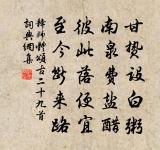 甘贄設白粥
南泉費鹽醋
彼此落便宜
至今斷來路
釋師範頌古二十九首
詞典網集